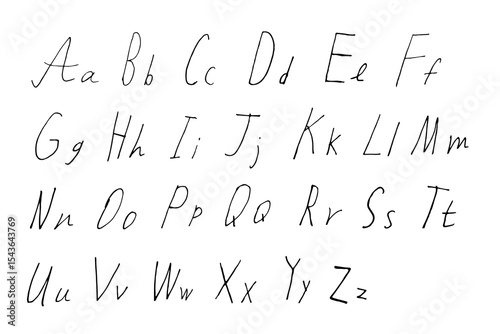 Aa Bb Cc Dd Ee Ff
Gg Hh Ii Jj Kk Ll Mm
Nn Oo Pp QQ Rr Ss Tt
Uu Vv Ww Xx Yy Zz
Adobe Stock | #1543643769